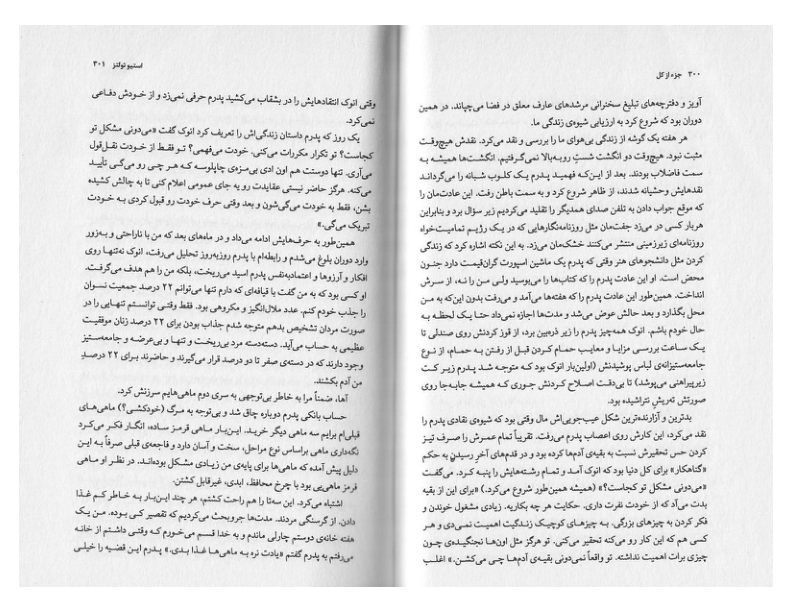 ۳۰۰ جزء از کل
آویز و دفترچه‌های تبلیغ سخنرانی مرشدهای عارف معلق در فضا می‌چپاند. در همین
دوران بود که شروع کرد به ارزیابی شیوه‌ی زندگی ما.
هر هفته یک گوشه از زندگی بی‌هوای ما را بررسی و نقد می‌کرد. نقدش هیچ‌وقت
مثبت نبود. هیچ‌وقت دو انگشت شستِ روبه‌بالا نمی‌گرفتیم. انگشت‌ها همیشه به
سمت فاضلاب بودند. بعد از این‌که فهمید پدرم یک کلوب شبانه را می‌گرداند
نقدهایش وحشیانه شدند، از ظاهر شروع کرد و به سمت باطن رفت. این عادت‌مان را
که موقع جواب دادن به تلفن صدای همدیگر را تقلید می‌کردیم زیر سؤال برد و بنابراین
هربار کسی در می‌زد جفت‌مان مثل روزنامه‌نگارهایی که در یک رژیم تمامیت‌خواه
روزنامه‌ای زیرزمینی منتشر می‌کنند خشک‌مان می‌زد. به این نکته اشاره کرد که زندگی
کردن مثل دانشجوهای هنر وقتی که پدرم یک ماشین اسپورت گران‌قیمت دارد جنون
محض است. او این عادت پدرم را که کتاب‌ها را می‌بوسید ولی من را نه، از سرش
انداخت. همین‌طور این عادت پدرم را که هفته‌ها می‌آمد و می‌رفت بدون این‌که به من
محل بگذارد و بعد حالش عوض می‌شد و مدت‌ها اجازه نمی‌داد حتا یک لحظه به
حال خودم باشم. انوک همه‌چیز پدرم را زیر ذره‌بین برد، از قوز کردنش روی صندلی تا
یک ساعت بررسی مزایا و معایب حمام کردن قبل از رفتن به حمام، از نوع
جامعه‌ستیزانه‌ی لباس پوشیدنش (اولین‌بار انوک بود که متوجه شد پدرم زیر کت
زیرپیراهنی می‌پوشد) تا بی‌دقت اصلاح کردنش جوری که همیشه جابه‌جا روی
صورتش ته‌ریشِ نتراشیده بود.
بدترین و آزارنده‌ترین شکل عیب‌جویی‌اش مال وقتی بود که شیوه‌ی نقادی پدرم را
نقد می‌کرد، این کارش روی اعصاب پدرم می‌رفت. تقریباً تمام عمرش را صرف تیز
کردن حس تحقیرش نسبت به بقیه‌ی آدم‌ها کرده بود و در قدم‌های آخرِ رسیدن به حکم
«گناهکار» برای کل دنیا بود که انوک آمد و تمام رشته‌هایش را پنبه کرد. می‌گفت
«می‌دونی مشکل تو کجاست؟» (همیشه همین‌طور شروع می‌کرد.) «برای این از بقیه
بدت می‌آد که از خودت نفرت داری. حکایت هر چه بکاریه. زیادی مشغول خوندن و
فکر کردن به چیزهای بزرگی. به چیزهای کوچیک زندگیت اهمیت نمی‌دی و هر
کسی هم که این کار رو می‌کنه تحقیر می‌کنی. تو هرگز مثل اون‌ها نجنگیده‌ی چون
چیزی برات اهمیت نداشته. تو واقعاً نمی‌دونی بقیه‌ی آدم‌ها چی می‌کشن.» اغلب
استیو تولتز ۳۰۱
وقتی انوک انتقادهایش را در بشقاب می‌کشید پدرم حرفی نمی‌زد و از خودش دفاعی
نمی‌کرد.
یک روز که پدرم داستان زندگی‌اش را تعریف کرد انوک گفت «می‌دونی مشکل تو
کجاست؟ تو تکرار مکررات می‌کنی. خودت می‌فهمی؟ تو فقط از خودت نقل‌قول
می‌آری. تنها دوستت هم اون ادی بی‌مزه‌ی چاپلوسه که هر چی رو می‌گی تأیید
می‌کنه. هرگز حاضر نیستی عقایدت رو یه جای عمومی اعلام کنی تا به چالش کشیده
بشن، فقط به خودت می‌گی‌شون و بعد وقتی حرف خودت رو قبول کردی به خودت
تبریک می‌گی.»
همین‌طور به حرف‌هایش ادامه می‌داد و در ماه‌های بعد که من با ناراحتی و به‌زور
وارد دوران بلوغ می‌شدم و رابطه‌ام با پدرم روزبه‌روز تحلیل می‌رفت، انوک نه‌تنها روی
افکار و آرزوها و اعتمادبه‌نفس پدرم اسید می‌ریخت، بلکه من را هم هدف می‌گرفت.
او کسی بود که به من گفت با قیافه‌ای که دارم تنها می‌توانم ۲۲ درصد جمعیت نسوان
را جذب خودم کنم. عدد ملال‌انگیز و مکروهی بود. فقط وقتی توانستم تنهایی را در
صورت مردان تشخیص بدهم متوجه شدم جذاب بودن برای ۲۲ درصد زنان موفقیت
عظیمی به حساب می‌آید. دسته‌دسته مرد بی‌ریخت و تنها و بی‌عرضه و جامعه‌ستیز
وجود دارند که در دسته‌ی صفر تا دو درصد قرار می‌گیرند و حاضرند برای ۲۲ درصدِ
من آدم بکشند.
آها، ضمناً مرا به خاطر بی‌توجهی به سری دوم ماهی‌هایم سرزنش کرد.
حساب بانکی پدرم دوباره چاق شد و بی‌توجه به مرگ (خودکشی؟) ماهی‌های
قبلی‌ام برایم سه ماهی دیگر خرید. این‌بار ماهی قرمز ساده، انگار فکر می‌کرد
نگه‌داری ماهی براساس نوع مراحل، سخت و آسان دارد و فاجعه‌ی قبلی صرفاً به این
دلیل پیش آمده که ماهی‌ها برای پایه‌ی من زیادی مشکل بوده‌اند. در نظر او ماهی
قرمز ماهی‌یی بود با چرخ محافظ، ابدی، غیرقابل کشتن.
اشتباه می‌کرد. این سه‌تا را هم راحت کشتم، هر چند این‌بار به خاطر کم غذا
دادن. از گرسنگی مردند. مدت‌ها جروبحث می‌کردیم که تقصیر کی بوده. من یک
هفته خانه‌ی دوستم چارلی ماندم و به خدا قسم می‌خورم که وقتی داشتم از خانه
می‌رفتم به پدرم گفتم «یادت نره به ماهی‌ها غذا بدی.» پدرم این قضیه را خیلی